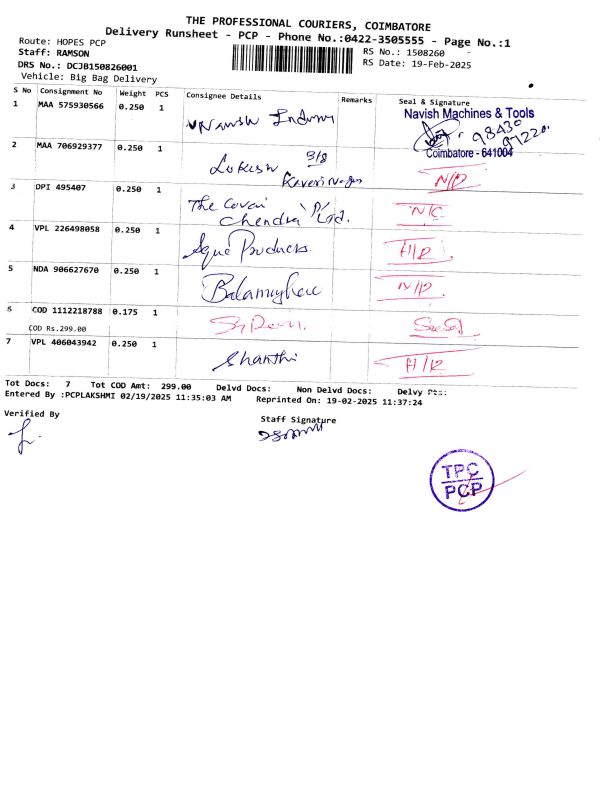 THE PROFESSIONAL COURIERS, COIMBATORE
Delivery Runsheet - PCP - Phone No.:0422-3505555 - Page No.:1
Route: HOPES PCP
RS No.: 1508260
Staff: RAMSON
RS Date: 19-Feb-2025
DRS No.: DCJB150826001
Vehicle: Big Bag Delivery
S No Consignment No Weight PCS Consignee Details Remarks Seal & Signature
1 MAA 575930566 0.250 1 Navish Machines & Tools
98430
97220
Coimbatore - 641004
2 MAA 706929377 0.250 1 Lokesh 3/8
Kaveri Nagar N/D
3 DPI 495407 0.250 1 The Covai
Chendra P/Ltd. N/C
4 VPL 226498058 0.250 1 Aqua Products H/R
5 NDA 906627670 0.250 1 N/D
6 COD 1112218788 0.175 1
COD Rs.299.00
7 VPL 406043942 0.250 1 Shanthi H/R
Tot Docs: 7 Tot COD Amt: 299.00 Delvd Docs: Non Delvd Docs: Delvy Pts:
Entered By :PCPLAKSHMI 02/19/2025 11:35:03 AM Reprinted On: 19-02-2025 11:37:24
Verified By
Staff Signature
TPC
PCP